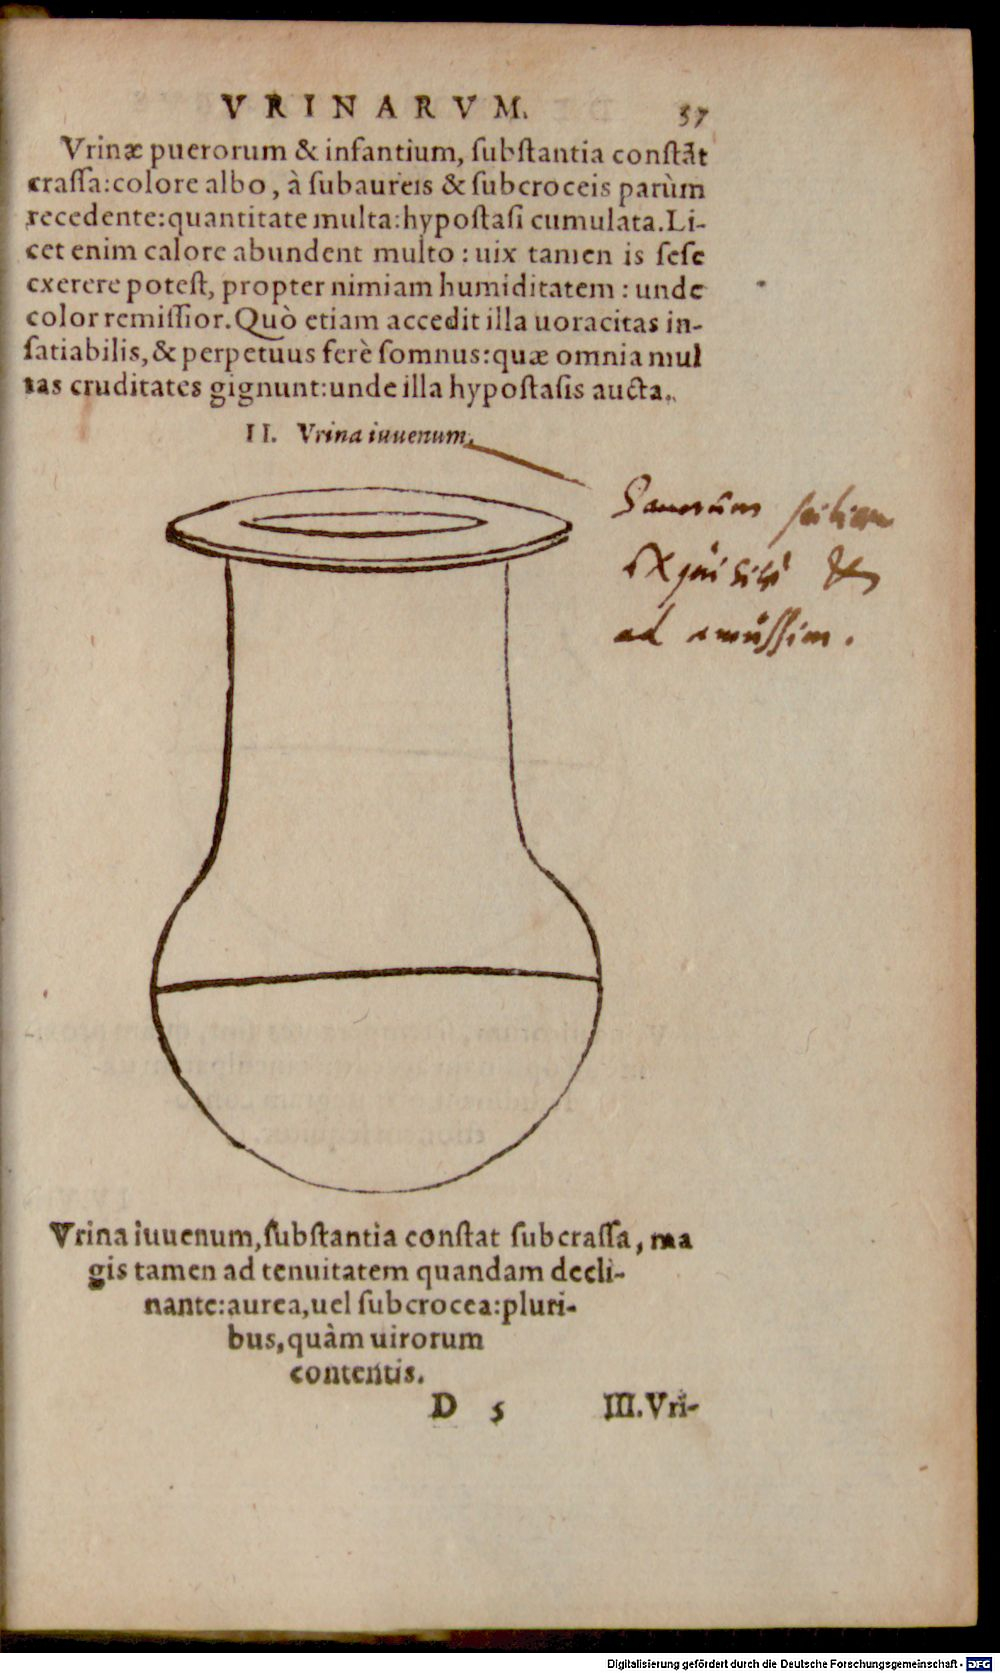 VRINARVM. 57
Vrinæ puerorum & infantium, ſubſtantia conſtāt
craſſa:colore albo, à ſubaureis & ſubcroceis parùm
recedente:quantitate multa:hypoſtaſi cumulata.Li-
cet enim calore abundent multo : uix tamen is ſeſe
exerere poteſt, propter nimiam humiditatem : unde
color remiſſior.Quò etiam accedit illa uoracitas in-
ſatiabilis,& perpetuus ferè ſomnus:quæ omnia mul
tas cruditates gignunt:unde illa hypoſtaſis aucta.
II. Vrina iuuenum.
&
ad amuſſim.
Vrina iuuenum,ſubſtantia conſtat ſubcraſſa, ma
gis tamen ad tenuitatem quandam decli-
nante:aurea,uel ſubcrocea:pluri-
bus,quàm uirorum
contentis.
D 5 III.Vri-
Digitalisierung gefördert durch die Deutsche Forschungsgemeinschaft - DFG